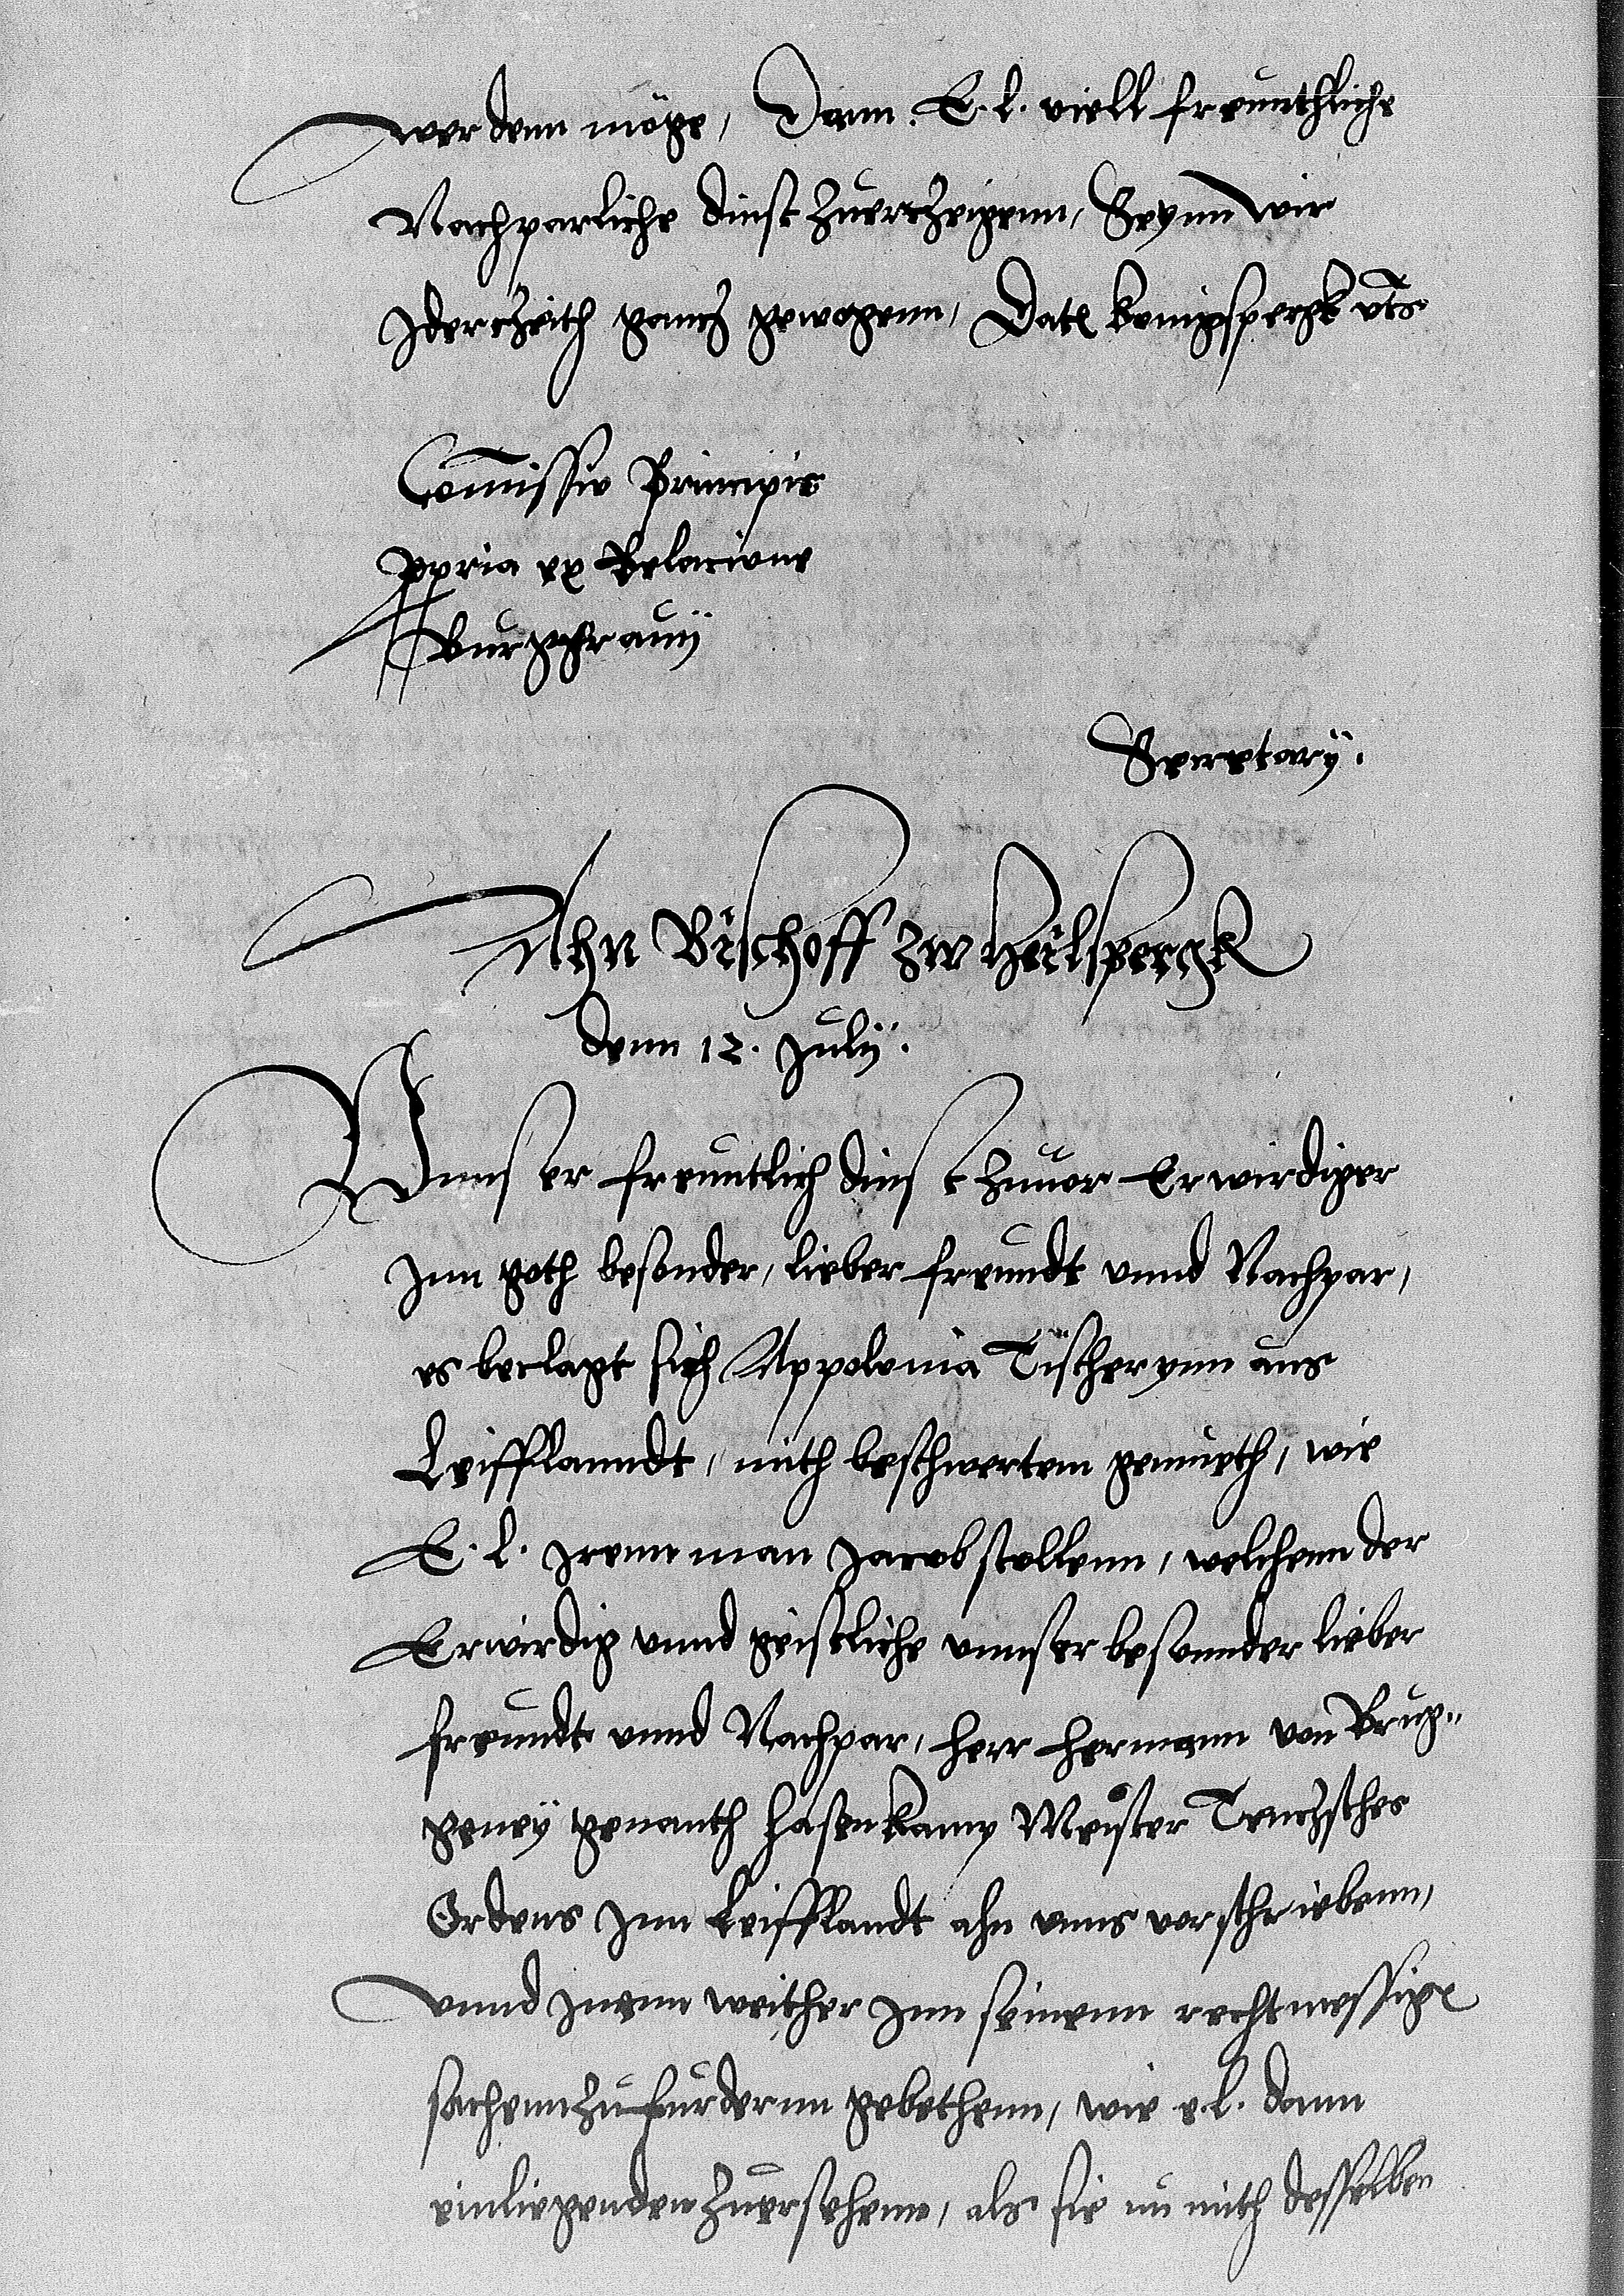 werdenn möge, Dann. E. l. viell freunthliche
Nachparliche dinst zuerczeigenn, Seynn wir
Iderczeith gancz gewogenn, Dat Konigspergk vts
Comissio Principis
ppria ex Relacione
Burggrauij
Secretarij.
Ahn Bischoff zw Heilspergk
denn 12. Julij.
Vnnser freuntlich dinst zuuor Erwirdiger
Inn goth besonder, lieber freundt vnnd Nachpar,
es beclagt sich Appolonia Tischerynn aus
Leifflanndt, mith beschwertem gemueth, wie
E. l. Irenn man Jacob stellenn, welchenn der
Erwirdig vnnd geistliche vnnser besonnder lieber
freundt vnnd Nachpar, herr Hermann von Brug„
geney genanth Hasenkamp Meister Teuczsches
Ordens Inn Leifflandt ahn vnns vorschriebenn,
vnnd Inenn weither Inn seinenn rechtmessig
sachenn zufurdernn gebethenn, wie e. l. dann
einliegenden zuersehenn, als sie nu mith desselben